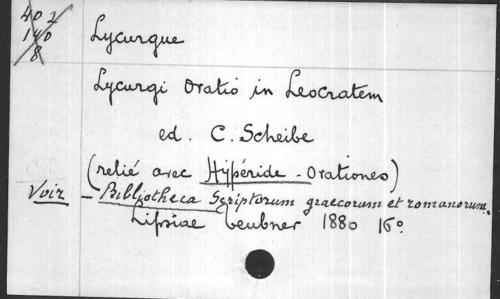 402
140
8
Lycurgue
Lycurgi Oratio in Leocratem
ed. C. Scheibe
(relié avec Hypéride - Orationes)
Voir - Bibliotheca Scriptorum graecorum et romanorum.
Lipsiae Teubner 1880 16°